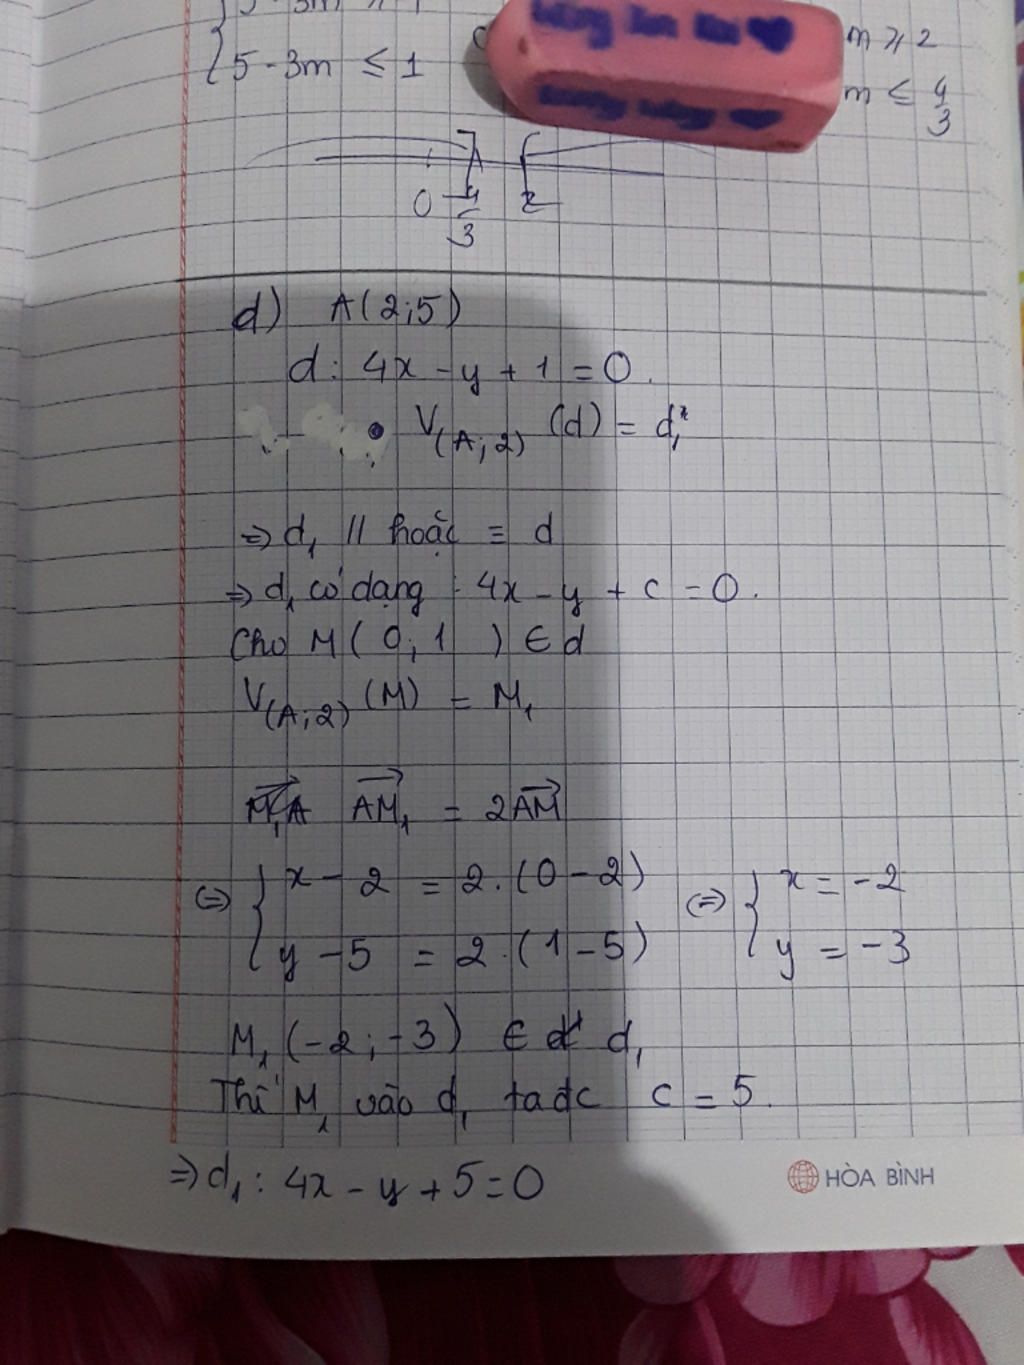 5 - 3m ≤ 1
m ≥ 2
m ≤ 4/3
0 4/3 2
d) A(2;5)
d: 4x - y + 1 = 0.
V(A;2) (d) = d₁
⇒ d₁ // hoặc ≡ d
⇒ d₁ có dạng : 4x - y + c = 0.
Cho M( 0; 1 ) ∈ d
V(A;2) (M) = M₁
AM₁ = 2AM
⇔ { x - 2 = 2.(0 - 2) ⇔ { x = -2
y - 5 = 2.(1 - 5) y = -3
M₁ (-2 ; -3) ∈ d₁
Thế M₁ vào d₁ ta đc c = 5.
⇒ d₁ : 4x - y + 5 = 0
HÒA BÌNH